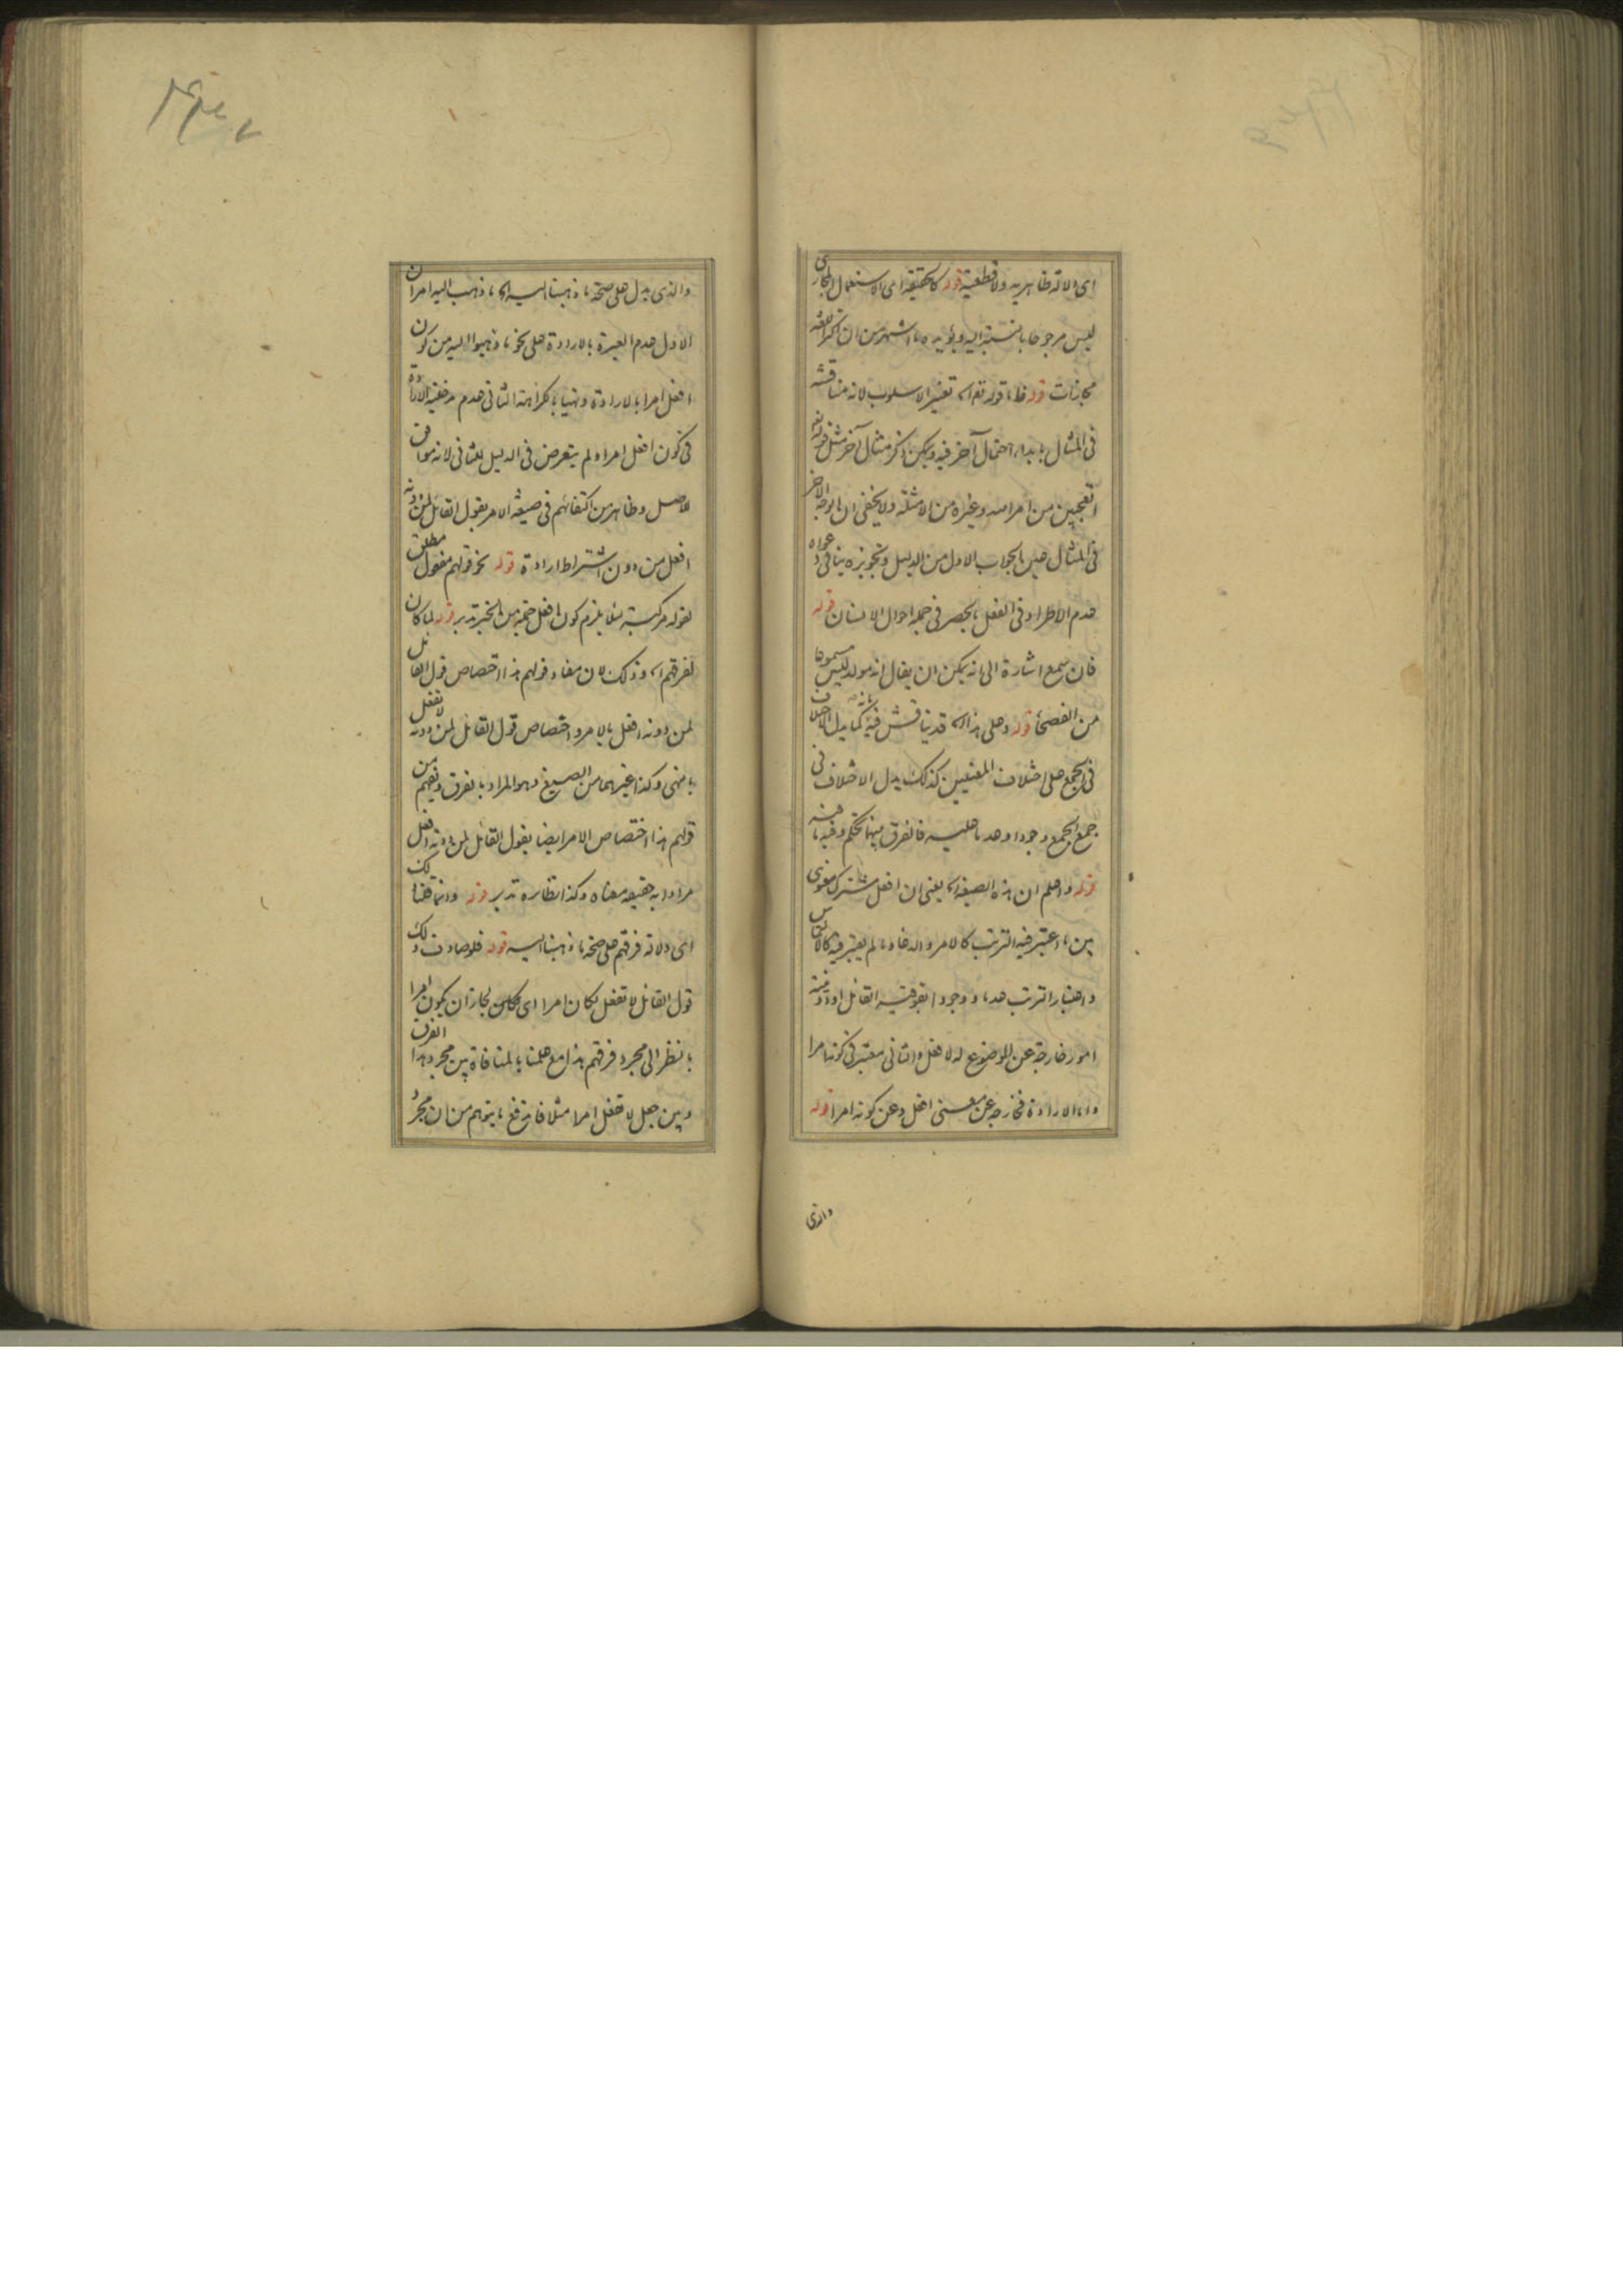 اى دلالة ظاهرية ولا قطعية قوله كالحقيقة اى الاستعمال المجازى
ليس مرجوحا بالنسبة اليه ويؤيده ما اشتهر من ان اكثر اللغة
مجازات قوله فاما قوله تعم اه تغيير الاسلوب لانه مناقشة
فى المثال بابداء احتمال آخر فيه ويمكن ذكر مثال آخر مثل قوله تعم
اتعجبين من امر الله وغيره من الامثلة ولا يخفى ان الوجه الاخر
فى المثال عين الجواب الاول من الدليل وتجويزه ينافى دعواه
عدم الاطراد فى الفعل بحصر فى جملة احوال الانسان قوله
فان سمع اشارة الى انه يمكن ان يقال انه مولد ليس مسموعا
من الفصحا قوله وعلى هذا اه قد يناقش فيه بانه كما يدل الاختلاف
فى الجمع على اختلاف المعنيين كذلك يدل الاختلاف فى
جمع الجمع وجودا وعدما عليه فالفرق بينهما تحكم وفيه ما فيه
قوله واعلم ان هذه الصيغة اه يعنى ان افعل مشترك معنوى
بين ما اعتبر فيه الترتب كالامر والدعاء وما لم يعتبر فيه كالالتماس
واعتبار الترتب عدما ووجودا بفوقية القائل او دونيته
امور خارجة عن الموضوع له لافعل والثانى معتبر فى كونه امرا
واما الارادة فخارجة عن معنى افعل وعن كونه امرا قوله
والذى
والذى يدل على صحة ما ذهبنا اليه اه ما ذهب اليه امران
الاول عدم العبرة بالارادة على نحو ما ذهبوا اليه من كون
افعل امرا بالارادة ونهيا بالكراهة الثانى عدم مدخلية الارادة
فى كون افعل امرا ولم يتعرض فى الدليل للثانى لانه موافق
للاصل وظاهر من اكتفائهم فى صيغة الامر بقول القائل لمن دونه
افعل من دون اشتراط ارادة قوله نحو قولهم مفعول مطلق
لقوله مركبة لئلا يلزم كون افعل من الخبر تدبر قوله لما كان
لفرقهم اه وذلك لان مفاد قولهم هذا اختصاص قول القائل
لمن دونه افعل بالامر واختصاص قول القائل لمن دونه لا تفعل
بالنهى وكذا غيرهما من الصيغ وهو المراد بالفرق ويفهم من
قولهم هذا اختصاص الامر ايضا بقول القائل لمن دونه افعل
مرادا به حقيقة معناه وكذا نظائره تدبر قوله وانما قلنا ذلك
اى دلالة فرقهم على صحة ما ذهبنا اليه قوله فلو صادف ذلك
قول القائل لا تفعل لكان امرا اى لجاز ان يكون امرا
بالنظر الى مجرد فرقهم هذا مع علمنا بالمنافاة بين مجرد هذا الفرق
وبين جعل لا تفعل امرا مثلا فاندفع ما يتوهم من ان مجرد